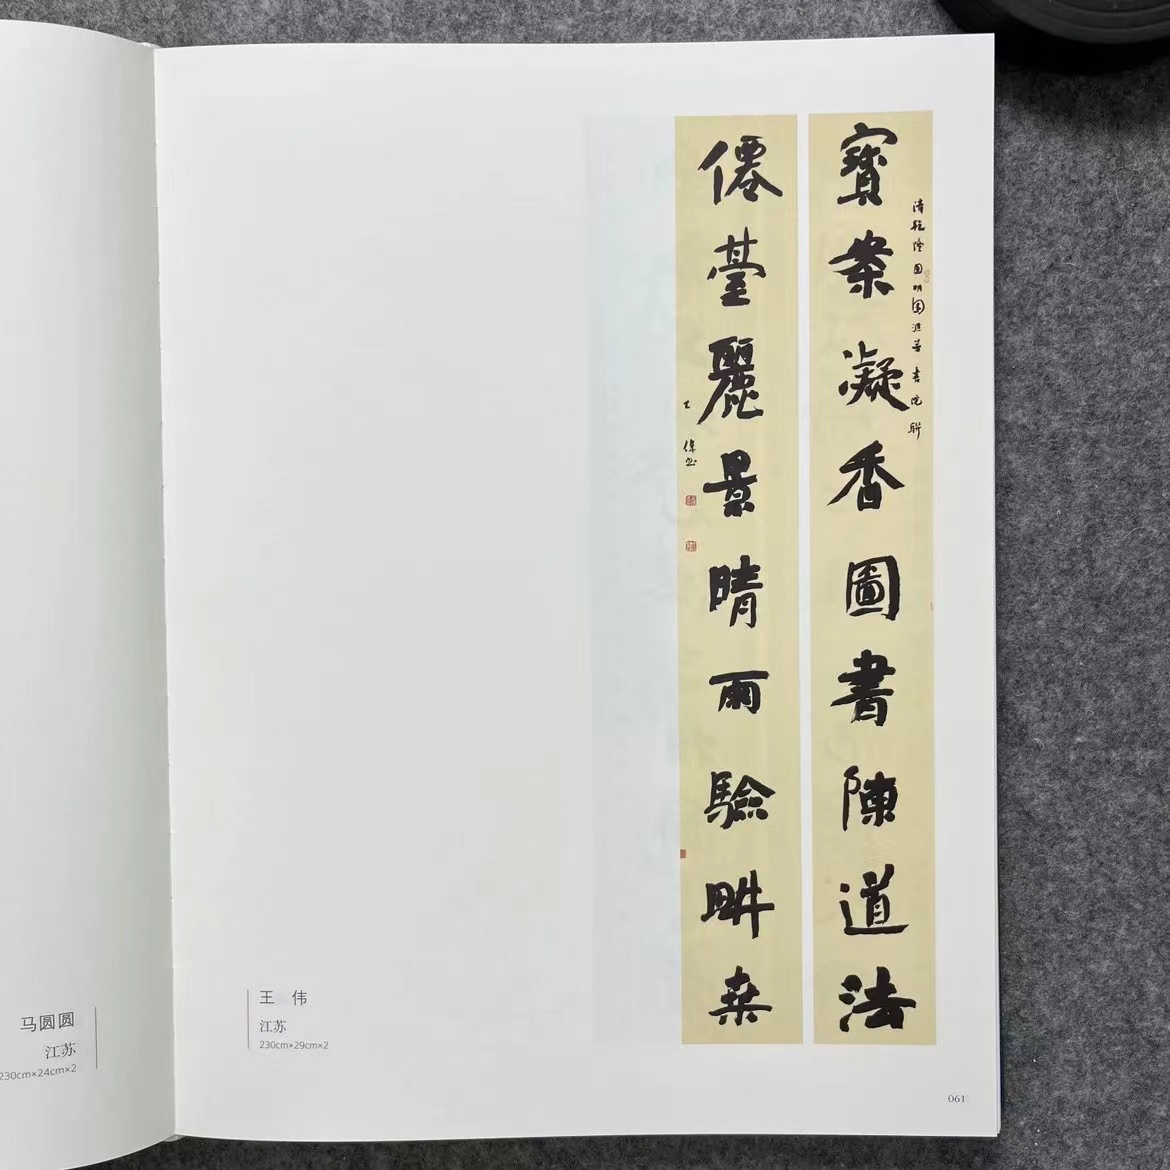 寶案凝香圖書陳道法
清乾隆圓明園滙芳書院聯
僊臺麗景晴雨驗畊桒
王偉書
王 伟
江苏
230cm×29cm×2
马圆圆
江苏
230cm×24cm×2
061